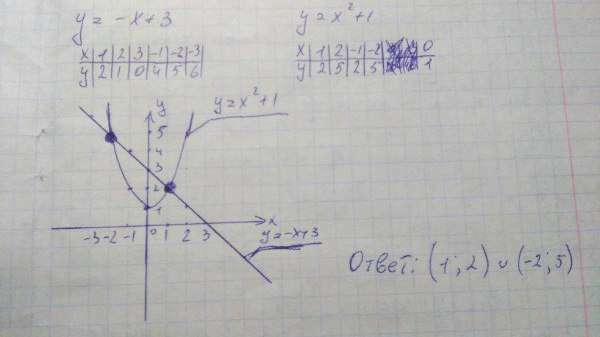 y = -x+3
y = x²+1
x 1 2 3 -1 -2 -3
y 2 1 0 4 5 6
x 1 2 -1 -2 0
y 2 5 2 5 1
y
y=x²+1
5
4
3
2
1
-3 -2 -1 0 1 2 3 x
y=-x+3
Ответ: (1; 2) и (-2; 5)